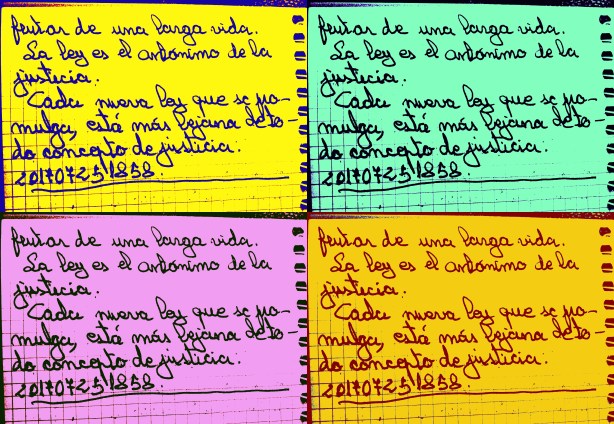 frutar de una larga vida.
La ley es el antónimo de la
justicia.
Cada nueva ley que se po-
mulga, está más lejana de to-
do concepto de justicia.
20170725/1858.
frutar de una larga vida.
La ley es el antónimo de la
justicia.
Cada nueva ley que se po-
mulga, está más lejana de to-
do concepto de justicia.
20170725/1858.
frutar de una larga vida.
La ley es el antónimo de la
justicia.
Cada nueva ley que se po-
mulga, está más lejana de to-
do concepto de justicia.
20170725/1858.
frutar de una larga vida.
La ley es el antónimo de la
justicia.
Cada nueva ley que se po-
mulga, está más lejana de to-
do concepto de justicia.
20170725/1858.